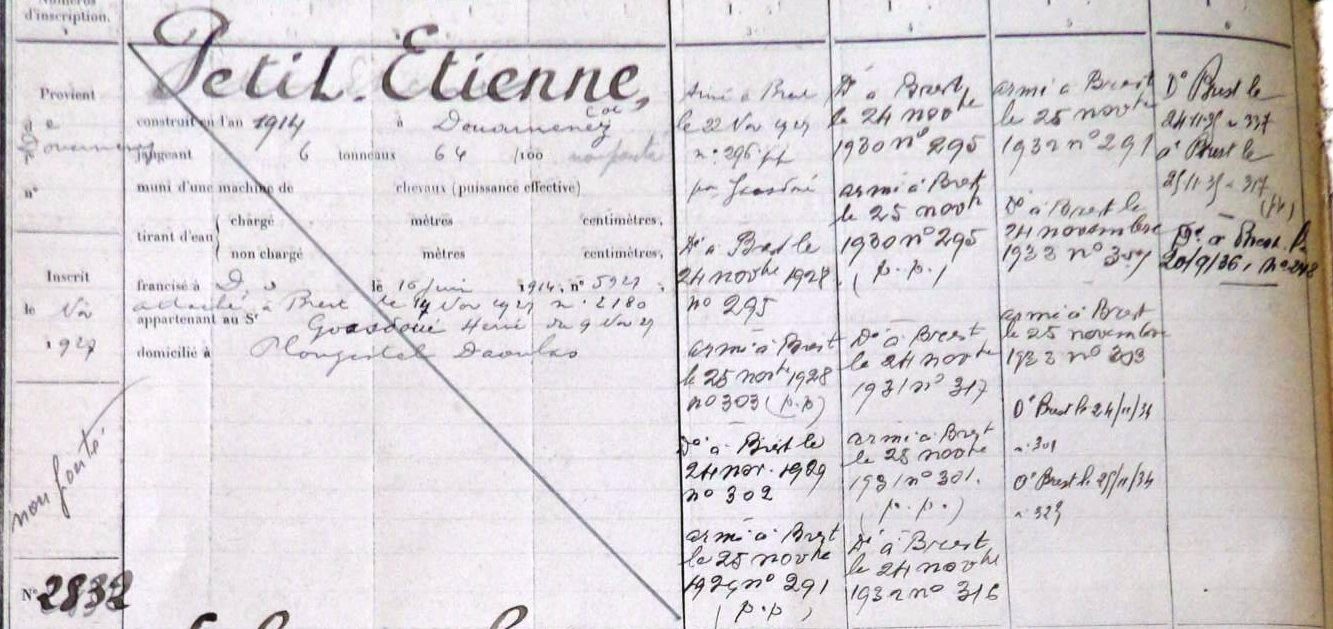 Numéros
d'inscription.
Provient
de
Douarnenez
n°
Inscrit
le Nov
1927
non ponté
N° 2832
Petit Etienne,
construit en l'an 1914 à Douarnenez
jaugeant 6 tonneaux 64 /100 non ponté
muni d'une machine de chevaux (puissance effective)
tirant d'eau
chargé mètres centimètres,
non chargé mètres centimètres,
francisé à le 16 juin 1914, n°
attaché à Brest le 14 Nov 1927 n° 2180
appartenant au Sr Goasdoué Hervé du 9 Nov 27
domicilié à Plougastel Daoulas
3
Armé à Brest
le 22 Nov 1927
n° 296 pp
par Goasdoué
Dé à Brest le
24 novbre 1928
n° 295
armé à Brest
le 25 novbre 1928
n° 303 (p.p)
Dé à Brest le
24 nov. 1929
n° 302
armé à Brest
le 25 novbre
1929 n° 291
(p.p)
4
Dé à Brest
le 24 novbre
1930 n° 295
armé à Brest
le 25 novbre
1930 n° 295
(p.p.)
Dé à Brest
le 24 novbre
1931 n° 317
armé à Brest
le 25 novbre
1931 n° 301.
(p.p.)
Dé à Brest
le 24 novbre
1932 n° 316
5
armé à Brest
le 25 novbre
1932 n° 291
Dé à Brest le
24 novembre
1933 n°
armé à Brest
le 25 novembre
1933 n° 303
Dé Brest le 24/11/34
n° 301
Dé Brest le 25/11/34
n° 329
6
Dé Brest le
24-11-35 n° 337
à Brest le
25-11-35 n° 317
(pp)
Dé à Brest le
20/9/36, n° 248